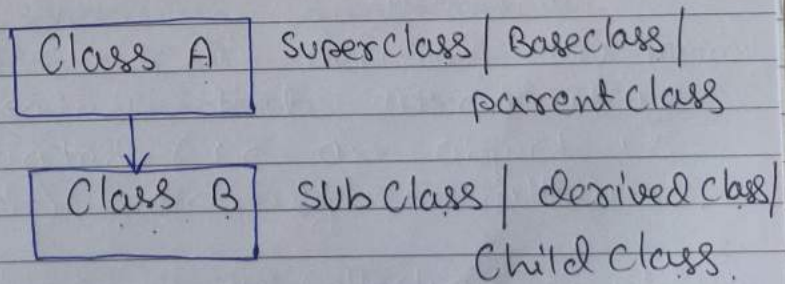 Class A Superclass | Baseclass |
parent class
Class B Sub Class | derived class |
Child class.